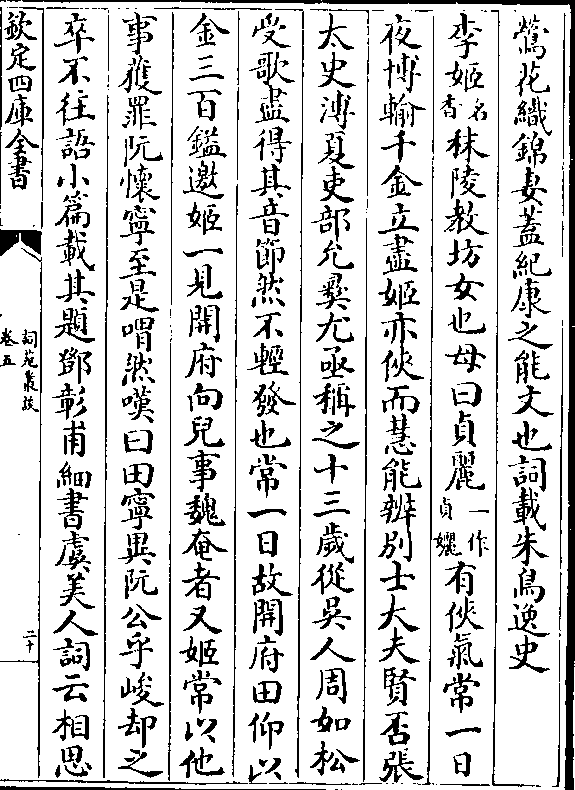 鶯花織錦妻蓋紀康之能文也詞載朱鳥逸史
李姬名香秣陵教坊女也母曰貞麗一作貞孋有俠氣常一日
夜博輸千金立盡姬亦俠而慧能辨别士大夫賢否張
太史溥夏吏部允彝尤亟稱之十三歲從吳人周如松
受歌盡得其音節然不輕發也常一日故開府田仰以
金三百鎰邀姬一見開府向兒事魏奄者又姬常以他
事獲罪阮懷寧至是喟然嘆曰田寧異阮公乎峻却之
卒不往語小篇載其題鄧彰甫細書虞美人詞云相思
欽定四庫全書
詞苑叢談
卷五
二十